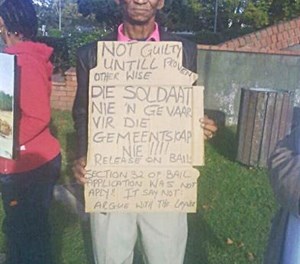 NOT GUILTY
UNTILL PROVEN
OTHER WISE
DIE SOLDAAT
NIE 'N GEVAAR
VIR DIE
GEMEENTSKAP
NIE !!!!
RELEASE ON BAIL
SECTION 32 OF BAIL
APPLICATION WAS NOT
APPLY! IT SAY NOT
ARGUE WITH THE